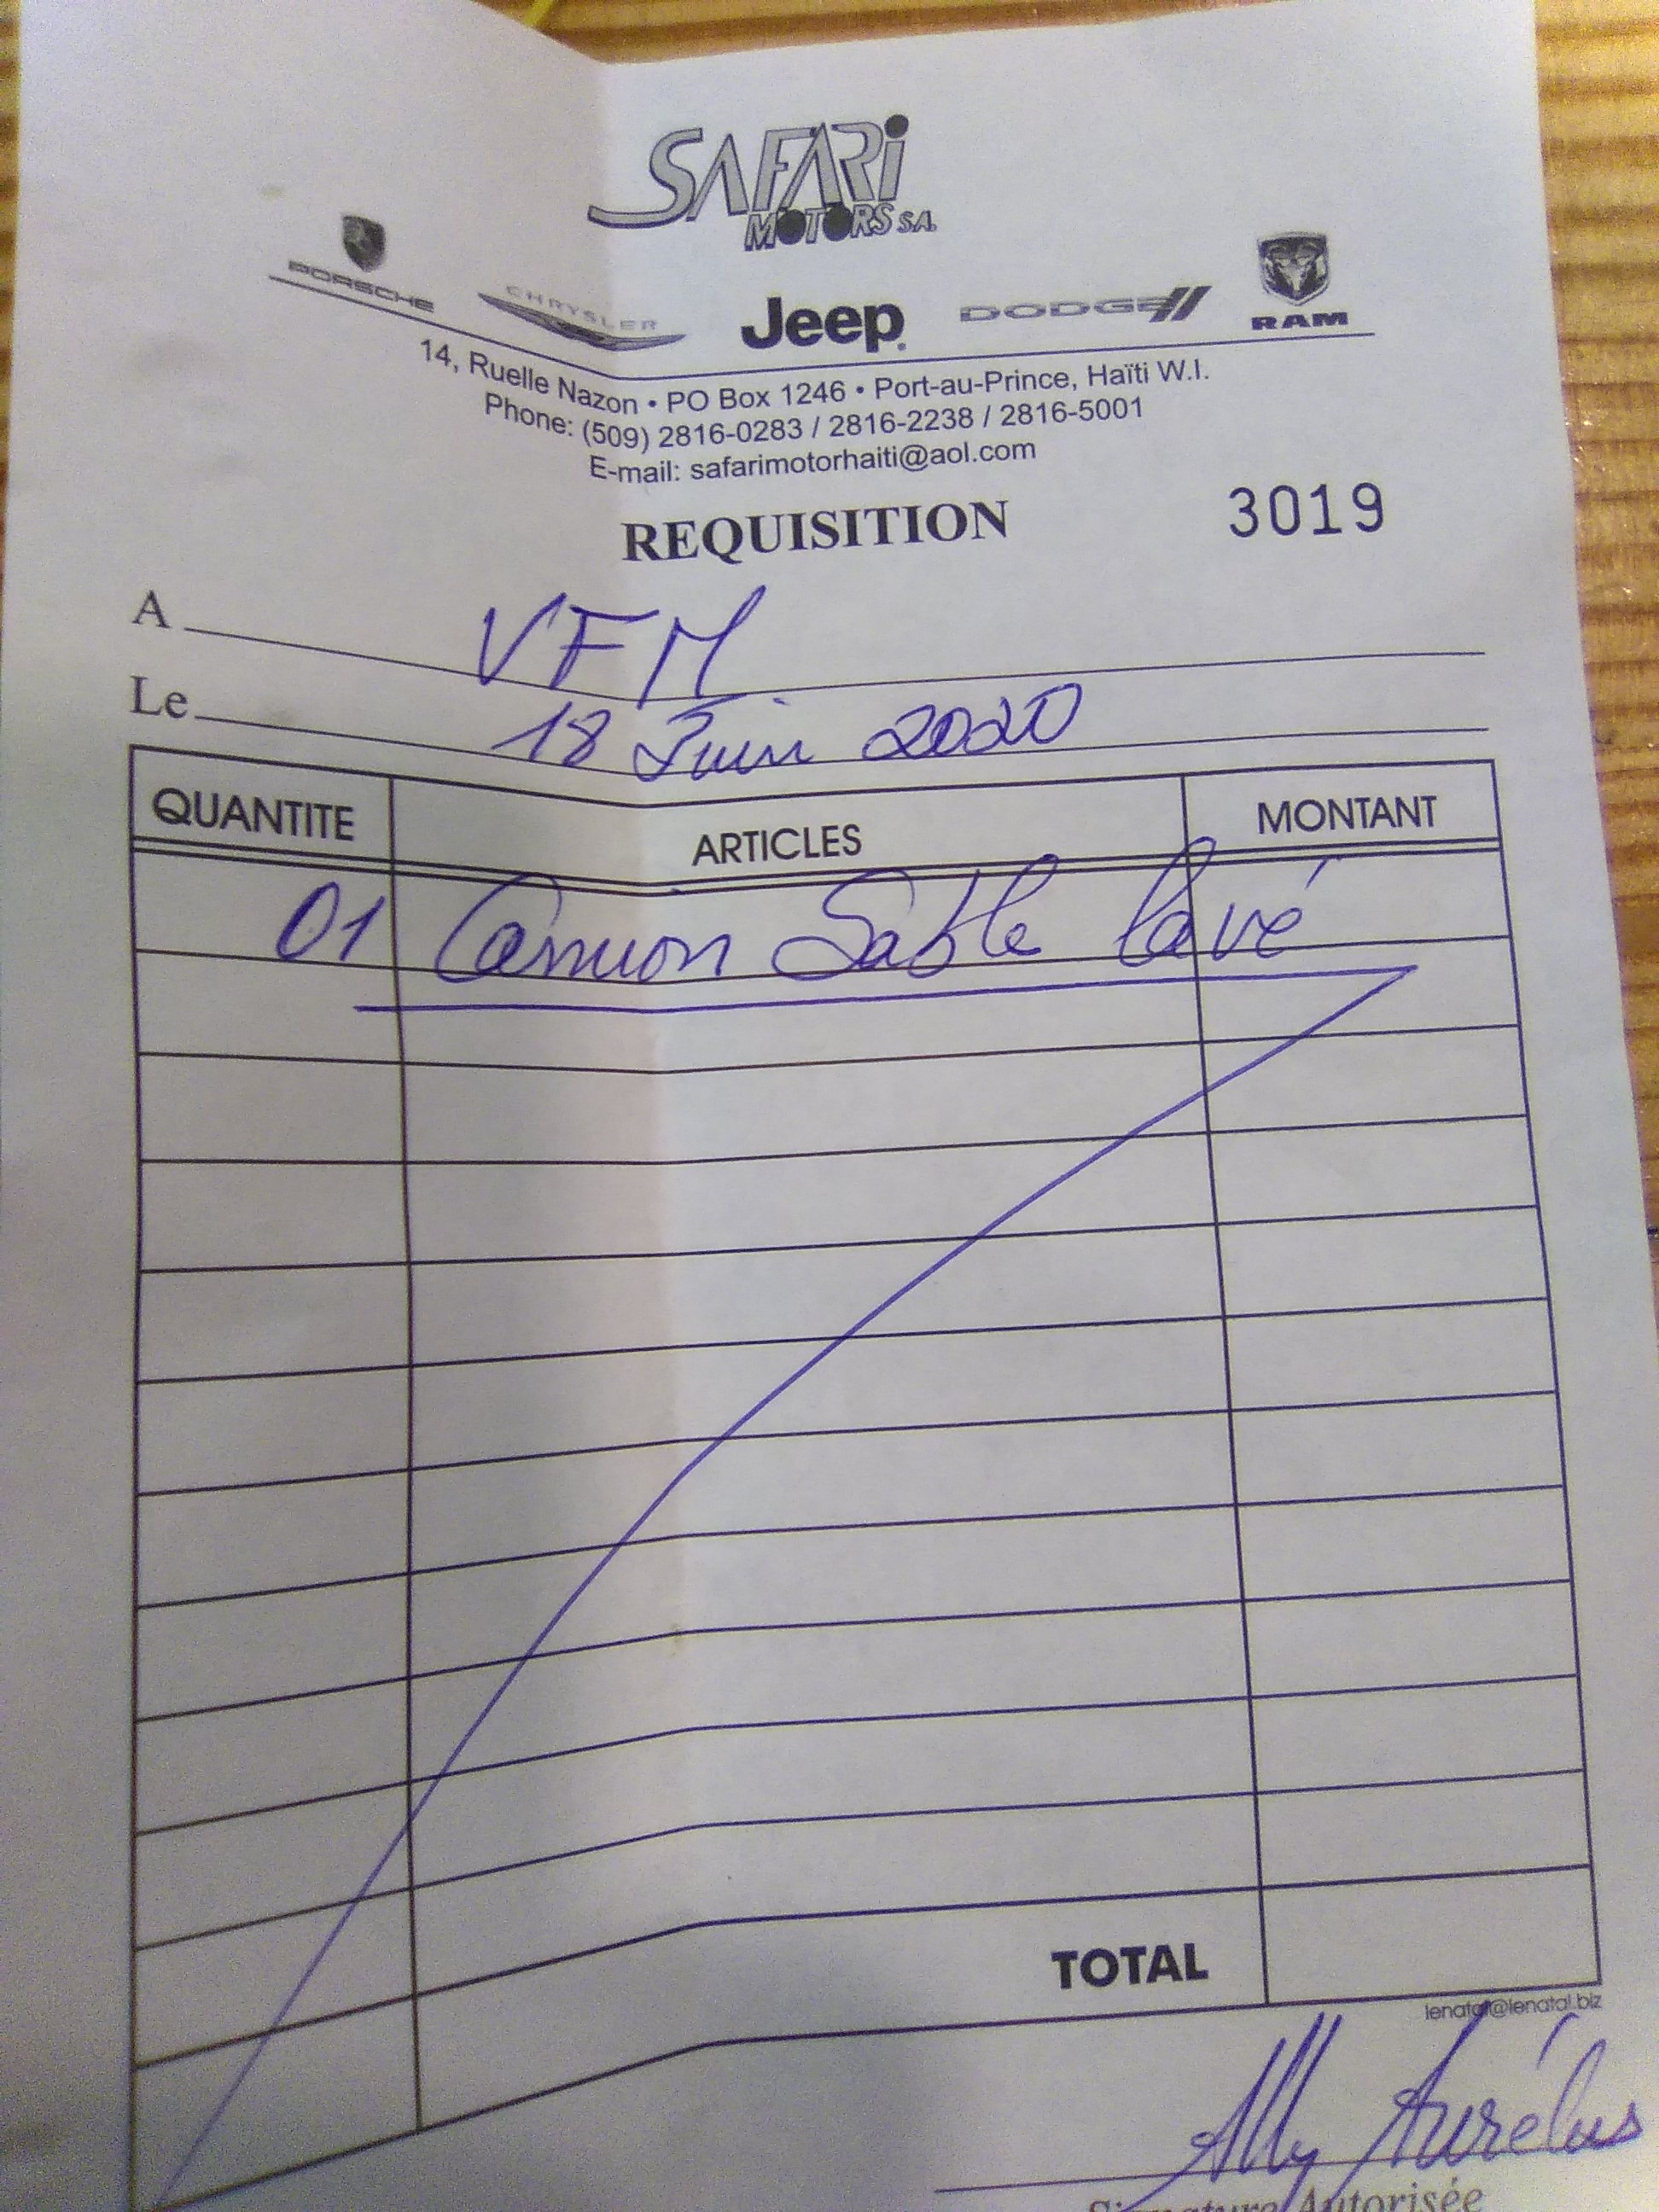 SAFARI
MOTORS S.A.
PORSCHE CHRYSLER Jeep DODGE RAM
14, Ruelle Nazon • PO Box 1246 • Port-au-Prince, Haïti W.I.
Phone: (509) 2816-0283 / 2816-2238 / 2816-5001
E-mail: safarimotorhaiti@aol.com
REQUISITION 3019
A VFM
Le 18 Juin 2020
QUANTITE ARTICLES MONTANT
01 Camion Sable lavé
TOTAL
lenatal@lenatal.biz
Ally Aurélus
Signature Autorisée